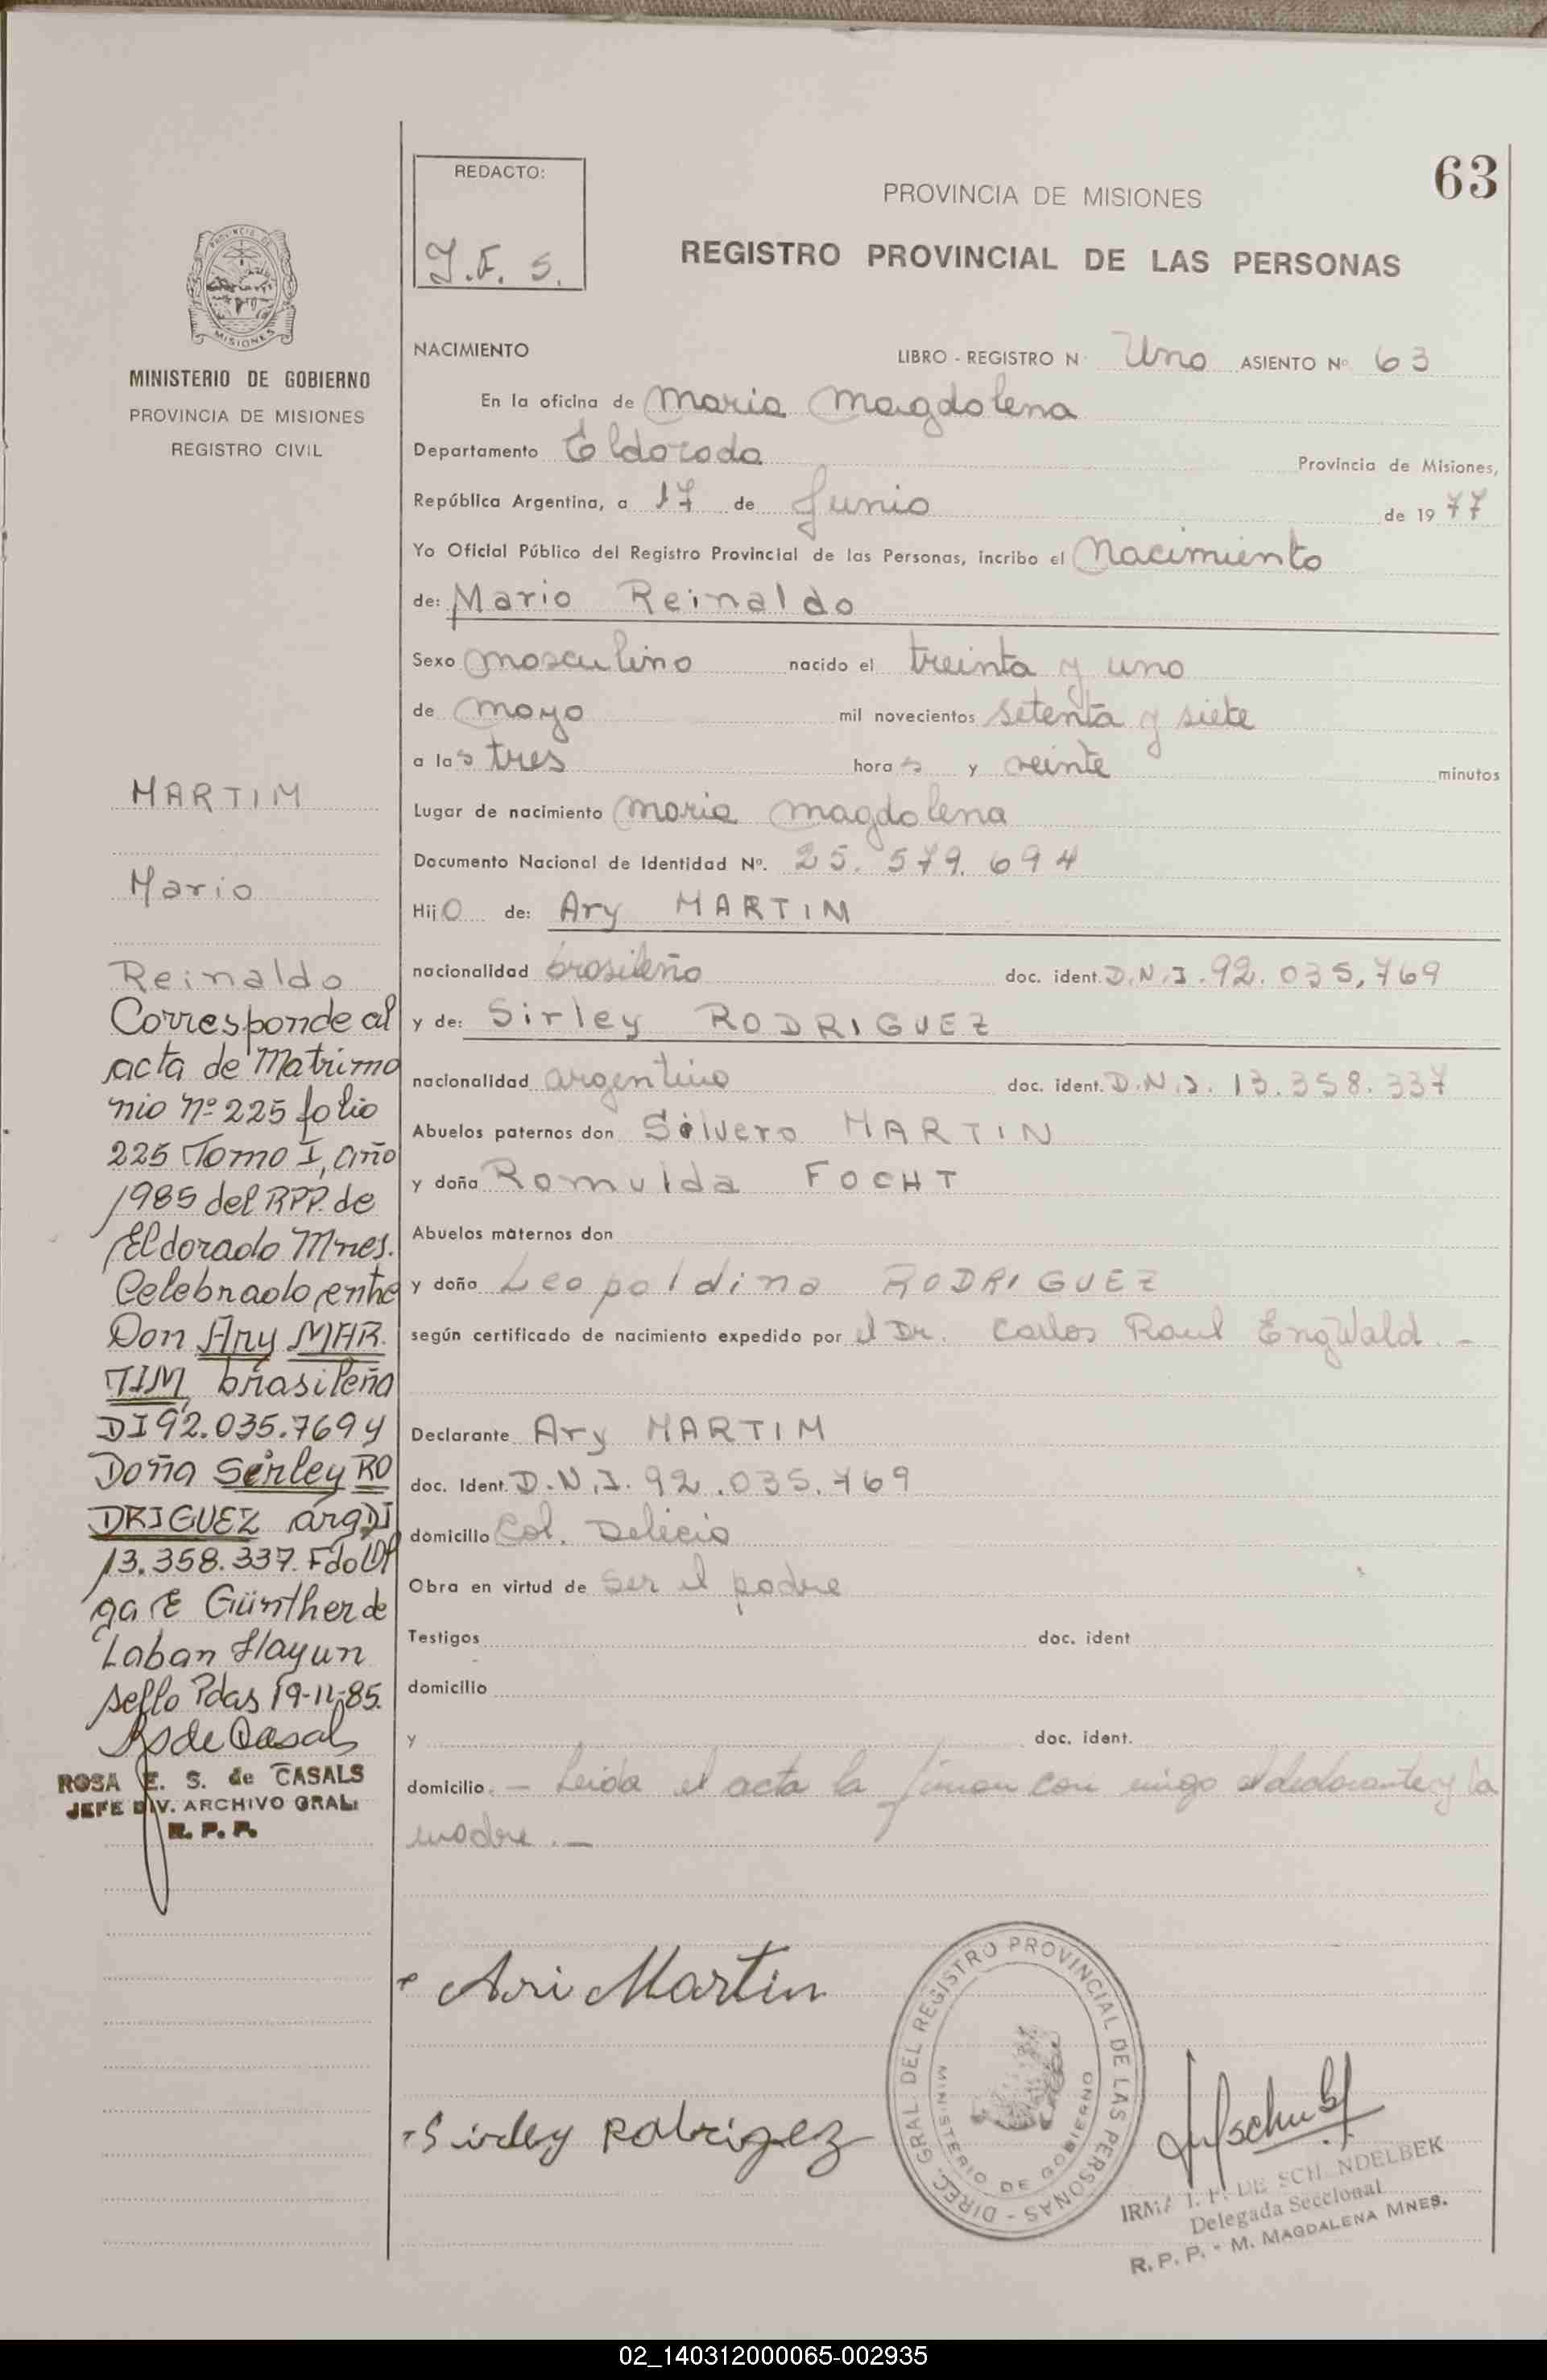 63
REDACTO:
J.F. S.
PROVINCIA DE MISIONES
REGISTRO PROVINCIAL DE LAS PERSONAS
PROVINCIA DE
MISIONES
MINISTERIO DE GOBIERNO
PROVINCIA DE MISIONES
REGISTRO CIVIL
MARTIM
Mario
Reinaldo
Corresponde al
acta de Matrimo
nio nº 225 folio
225 Tomo I, año
1985 del RPP. de
Eldorado Mnes.
Celebrado entre
Don Ary MAR.
TIM, brasileña
DI 92.035.769 y
Doña Sirley RO
DRIGUEZ arg DI
13.358.337. Fdo Ol
ga E Günther de
Laban Hayun
sello Pdas 19-11-85.
ROSA E. S. de CASALS
JEFE DIV. ARCHIVO GRAL.
R. P. P.
NACIMIENTO LIBRO - REGISTRO N· Uno ASIENTO Nº 63
En la oficina de Maria Magdalena
Departamento Eldorado Provincia de Misiones,
República Argentina, a 17 de Junio de 1977
Yo Oficial Público del Registro Provincial de las Personas, incribo el Nacimiento
de: Mario Reinaldo
Sexo masculino nacido el treinta y uno
de mayo mil novecientos setenta y siete
a las tres horas y veinte minutos
Lugar de nacimiento Maria Magdalena
Documento Nacional de Identidad Nº. 25.579.694
Hijo de: Ary MARTIM
nacionalidad brasileño doc. ident. D.N.I. 92.035.769
y de: Sirley RODRIGUEZ
nacionalidad argentina doc. ident. D.N.I. 13.358.337
Abuelos paternos don Silvero MARTIN
y doña Romulda FOCHT
Abuelos maternos don
y doña Leopoldina RODRIGUEZ
según certificado de nacimiento expedido por el Dr. Carlos Raul EngWald. -
Declarante Ary MARTIM
doc. Ident. D.N.I. 92.035.769
domicilio Col. Delicia
Obra en virtud de ser el padre
Testigos doc. ident
domicilio
y doc. ident.
domicilio. - Leida el acta la firman con migo el declarante y la
madre. -
Ari Martin
Sirley Rodriguez
DIREC. GRAL. DEL REGISTRO PROVINCIAL DE LAS PERSONAS -
MINISTERIO DE GOBIERNO
IRMA I. F. DE SCH NDELBEK
Delegada Seccional
R. P. P. - M. MAGDALENA MNES.
02_140312000065-002935